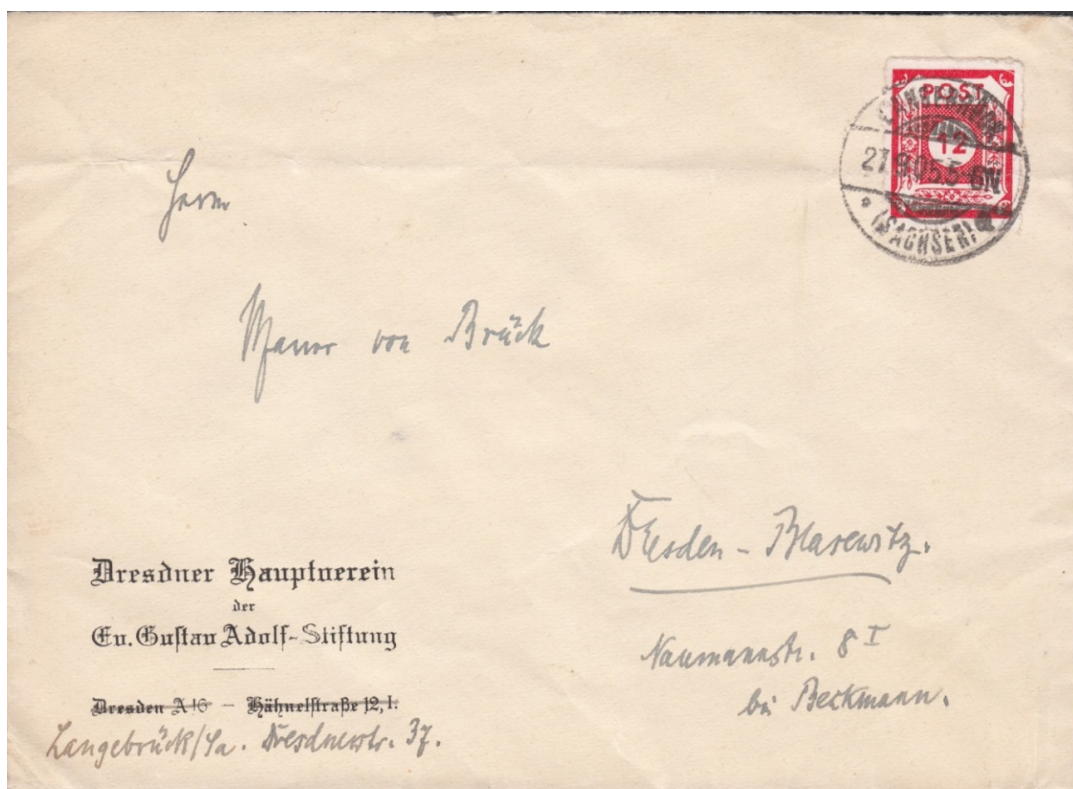 POST
12
LANGEBRÜCK
(SACHSEN)
Herrn
von Brück
Dresden - Blasewitz.
Naumannstr. 8 I
bei Beckmann.
Dresdner Hauptverein
der
Ev. Gustav Adolf-Stiftung
Dresden A 16 – Hähnelstraße 12, I.
Langebrück/Sa. Dresdnerstr. 37.